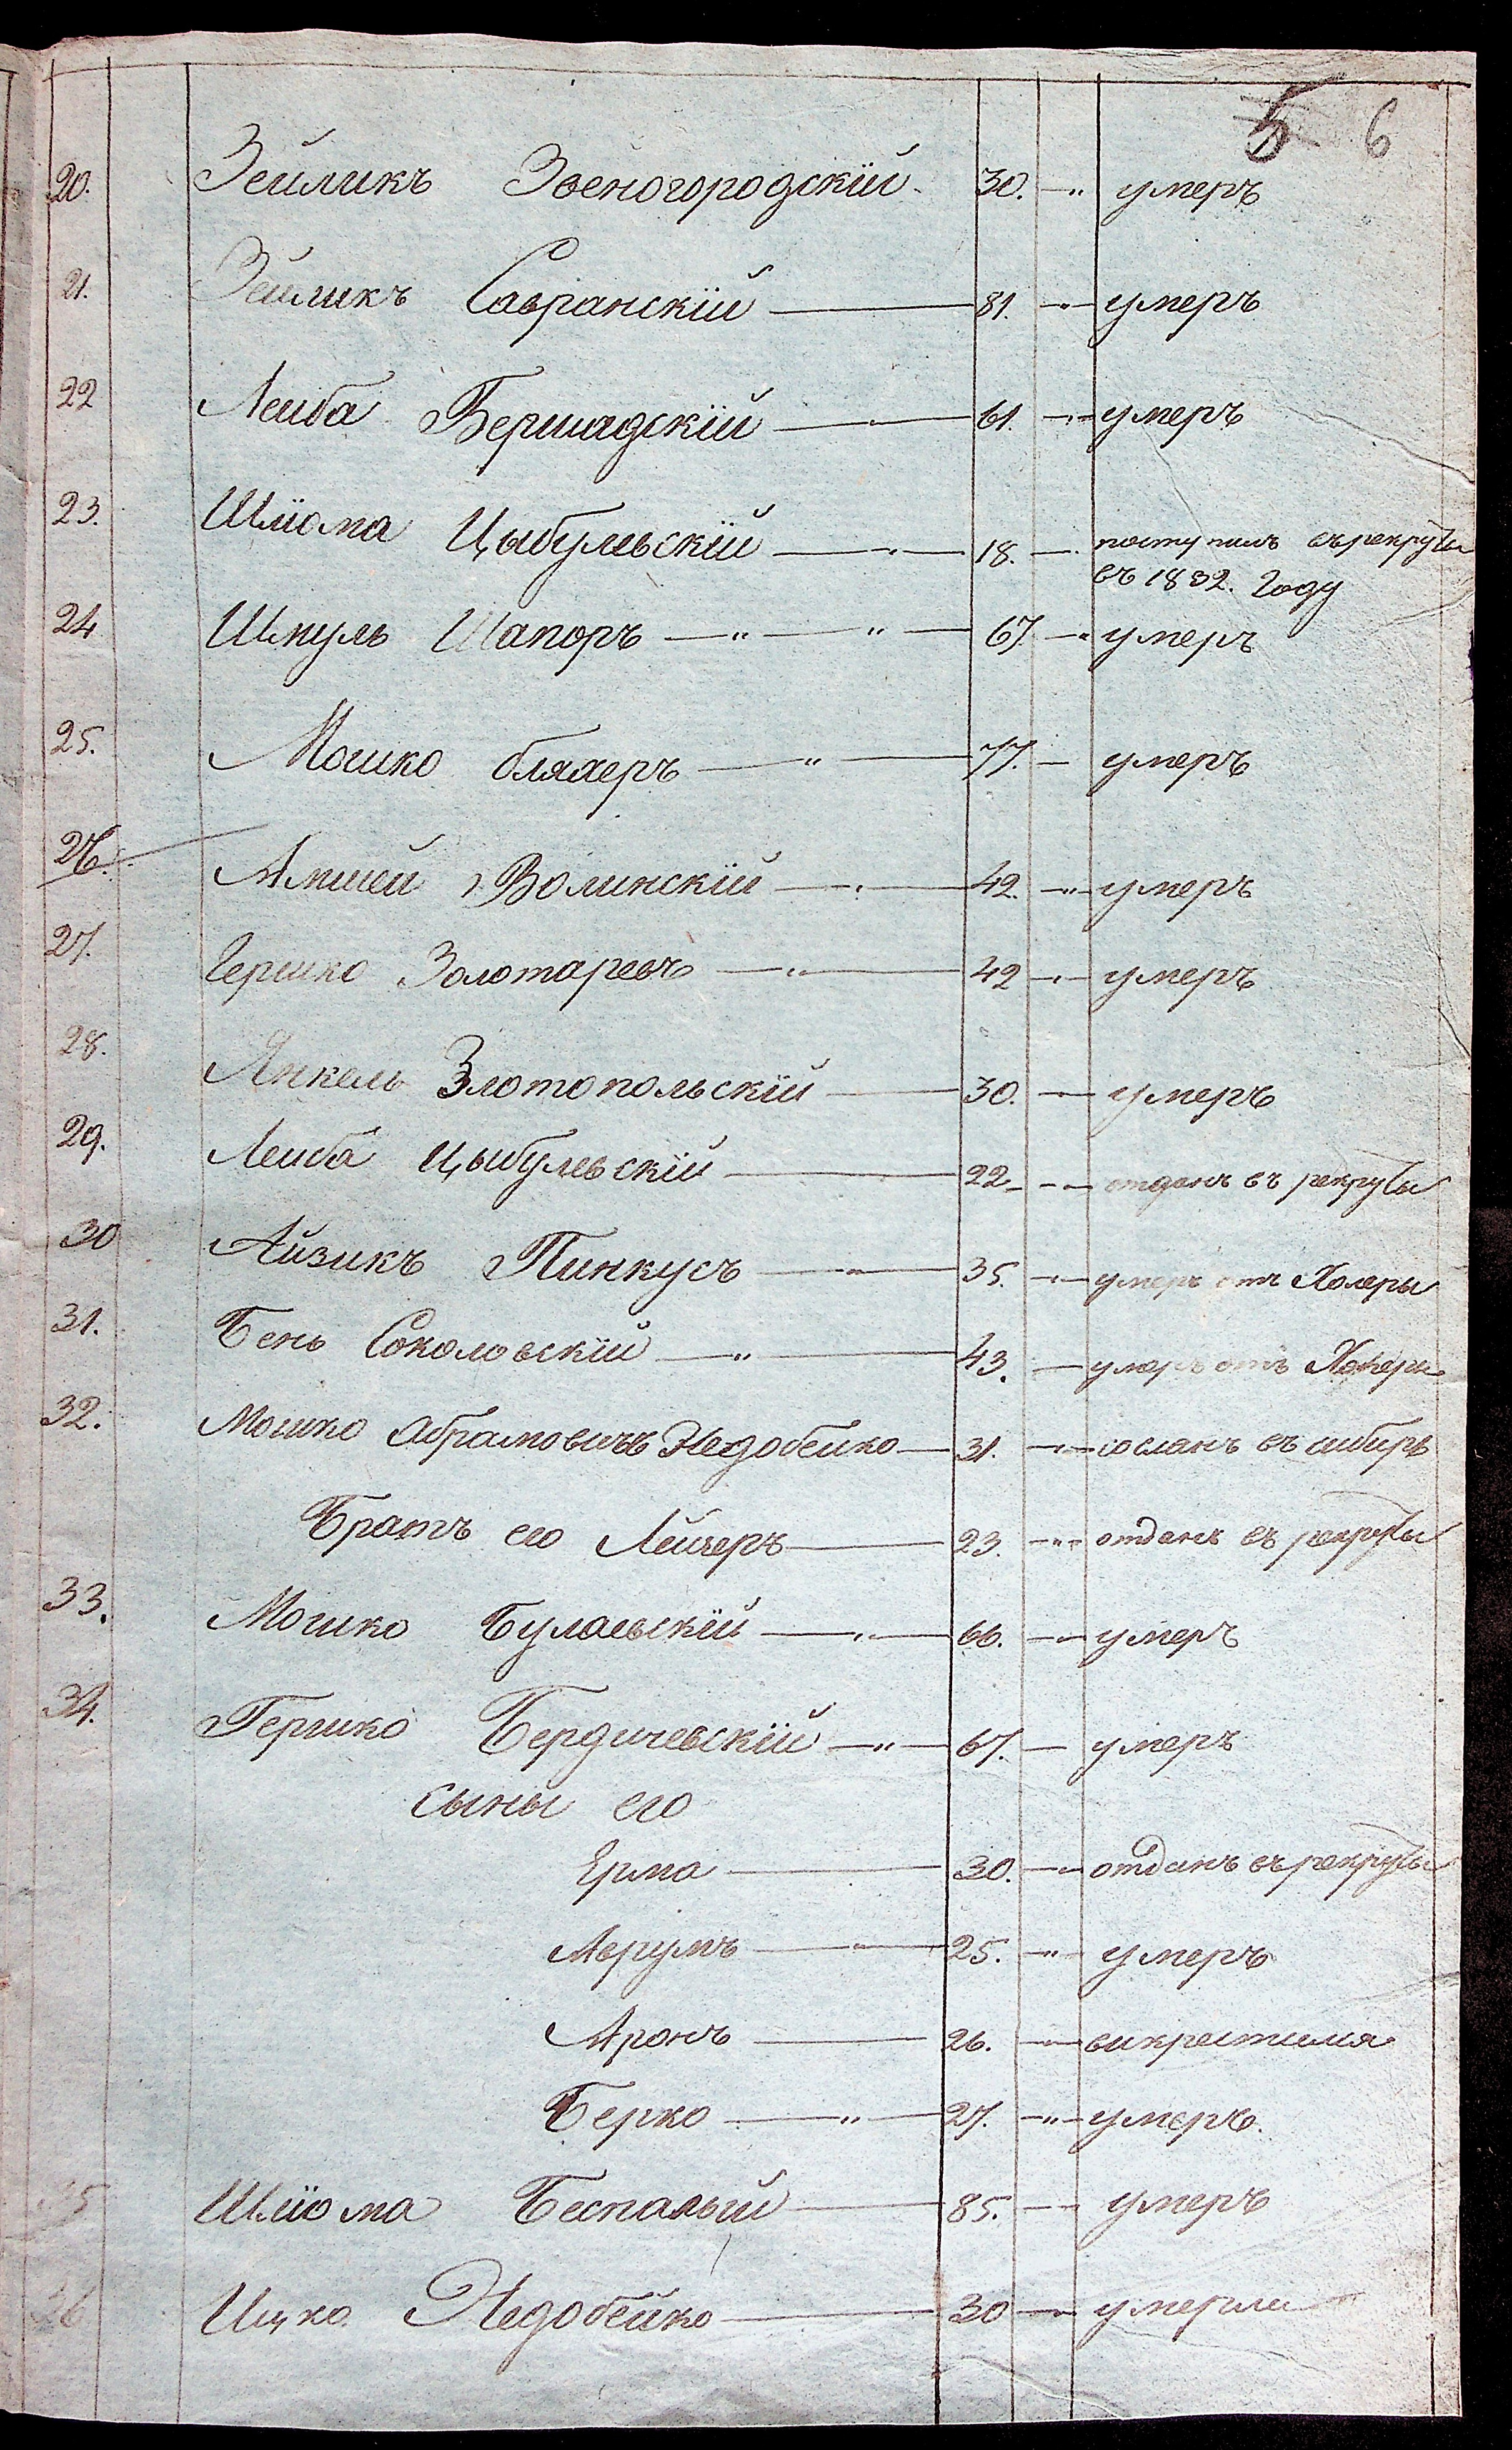 5 6
20. Зейликъ Звеногородскій 30. — „ умеръ
21. Зейликъ Савранскій — 81. — умеръ
22 Лейба Бершадскій — 61. — умеръ
23. Шліома Цыбульскій — 18. — поступилъ въ рекруты
въ 1832. Году
24 Шмуль Шапоръ — „ — „ — 67. — умеръ
25. Мошко бляхеръ — „ — 77. — умеръ
26. Амшей Волинскій — 42. — „ — умеръ
27. Гершко Золотаревъ — „ — 42 — умеръ
28. Янкель Златопольскій — 30. — умеръ
29. Лейба Цыбульскій — 22 — отданъ въ рекруты
30 Айзикъ Пинкусъ — 35. — умеръ отъ Холеры
31. Бень Соколовскій — „ — 43. — умеръ отъ Холеры
32. Мошко Абрамовичъ Недобейко — 31. — сосланъ въ сибирь
Братъ его Лейзеръ — 23. — „ отданъ въ рекруты
33. Мошко Булаевскій — 66. — умеръ
34. Гершко Бердичевскій — „ — 67. — умеръ
Сыны его
Ерма — 30. — отданъ въ рекруты
Аврумъ — 25. — „ умеръ
Аронъ — 26. — выкрестился
Берко — „ — 27. — „ — умеръ.
35 Шліома Беспалый — 85. — умеръ
36 Ицко Недобейко — 30 — умерли